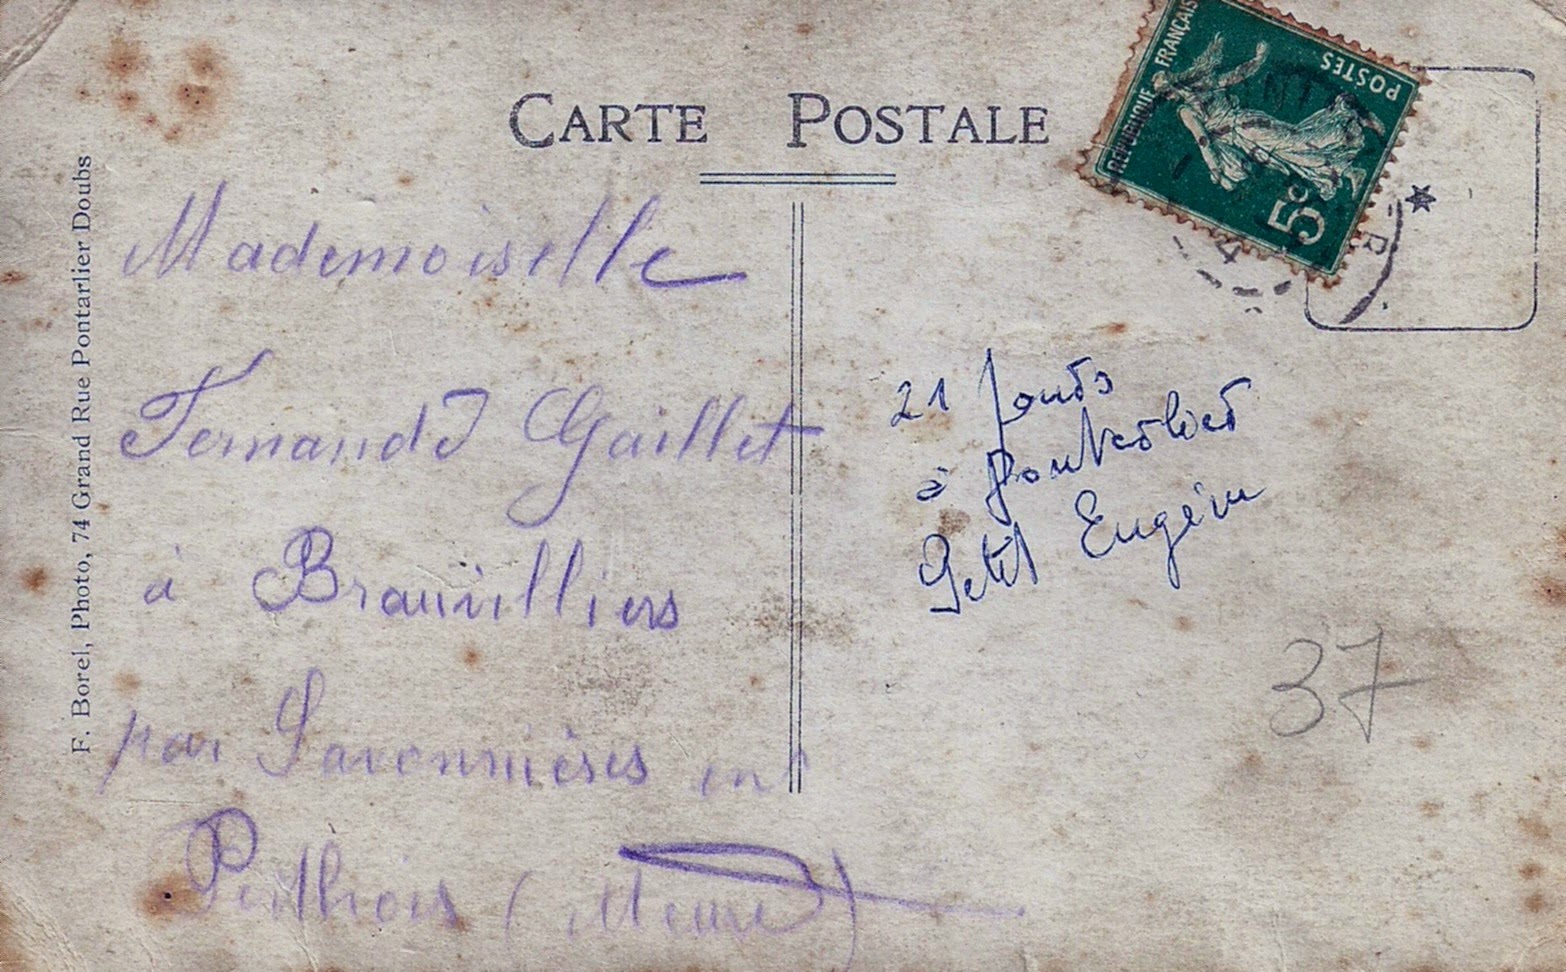 CARTE POSTALE
RÉPUBLIQUE FRANÇAISE
POSTES
5c
F. Borel, Photo, 74 Grand Rue Pontarlier Doubs
Mademoiselle
Fernande Gaillet
à Brauvilliers
par Savonnières en
Perthois (Meuse)
21 jours
à Pontarlier
Petit Eugène
37